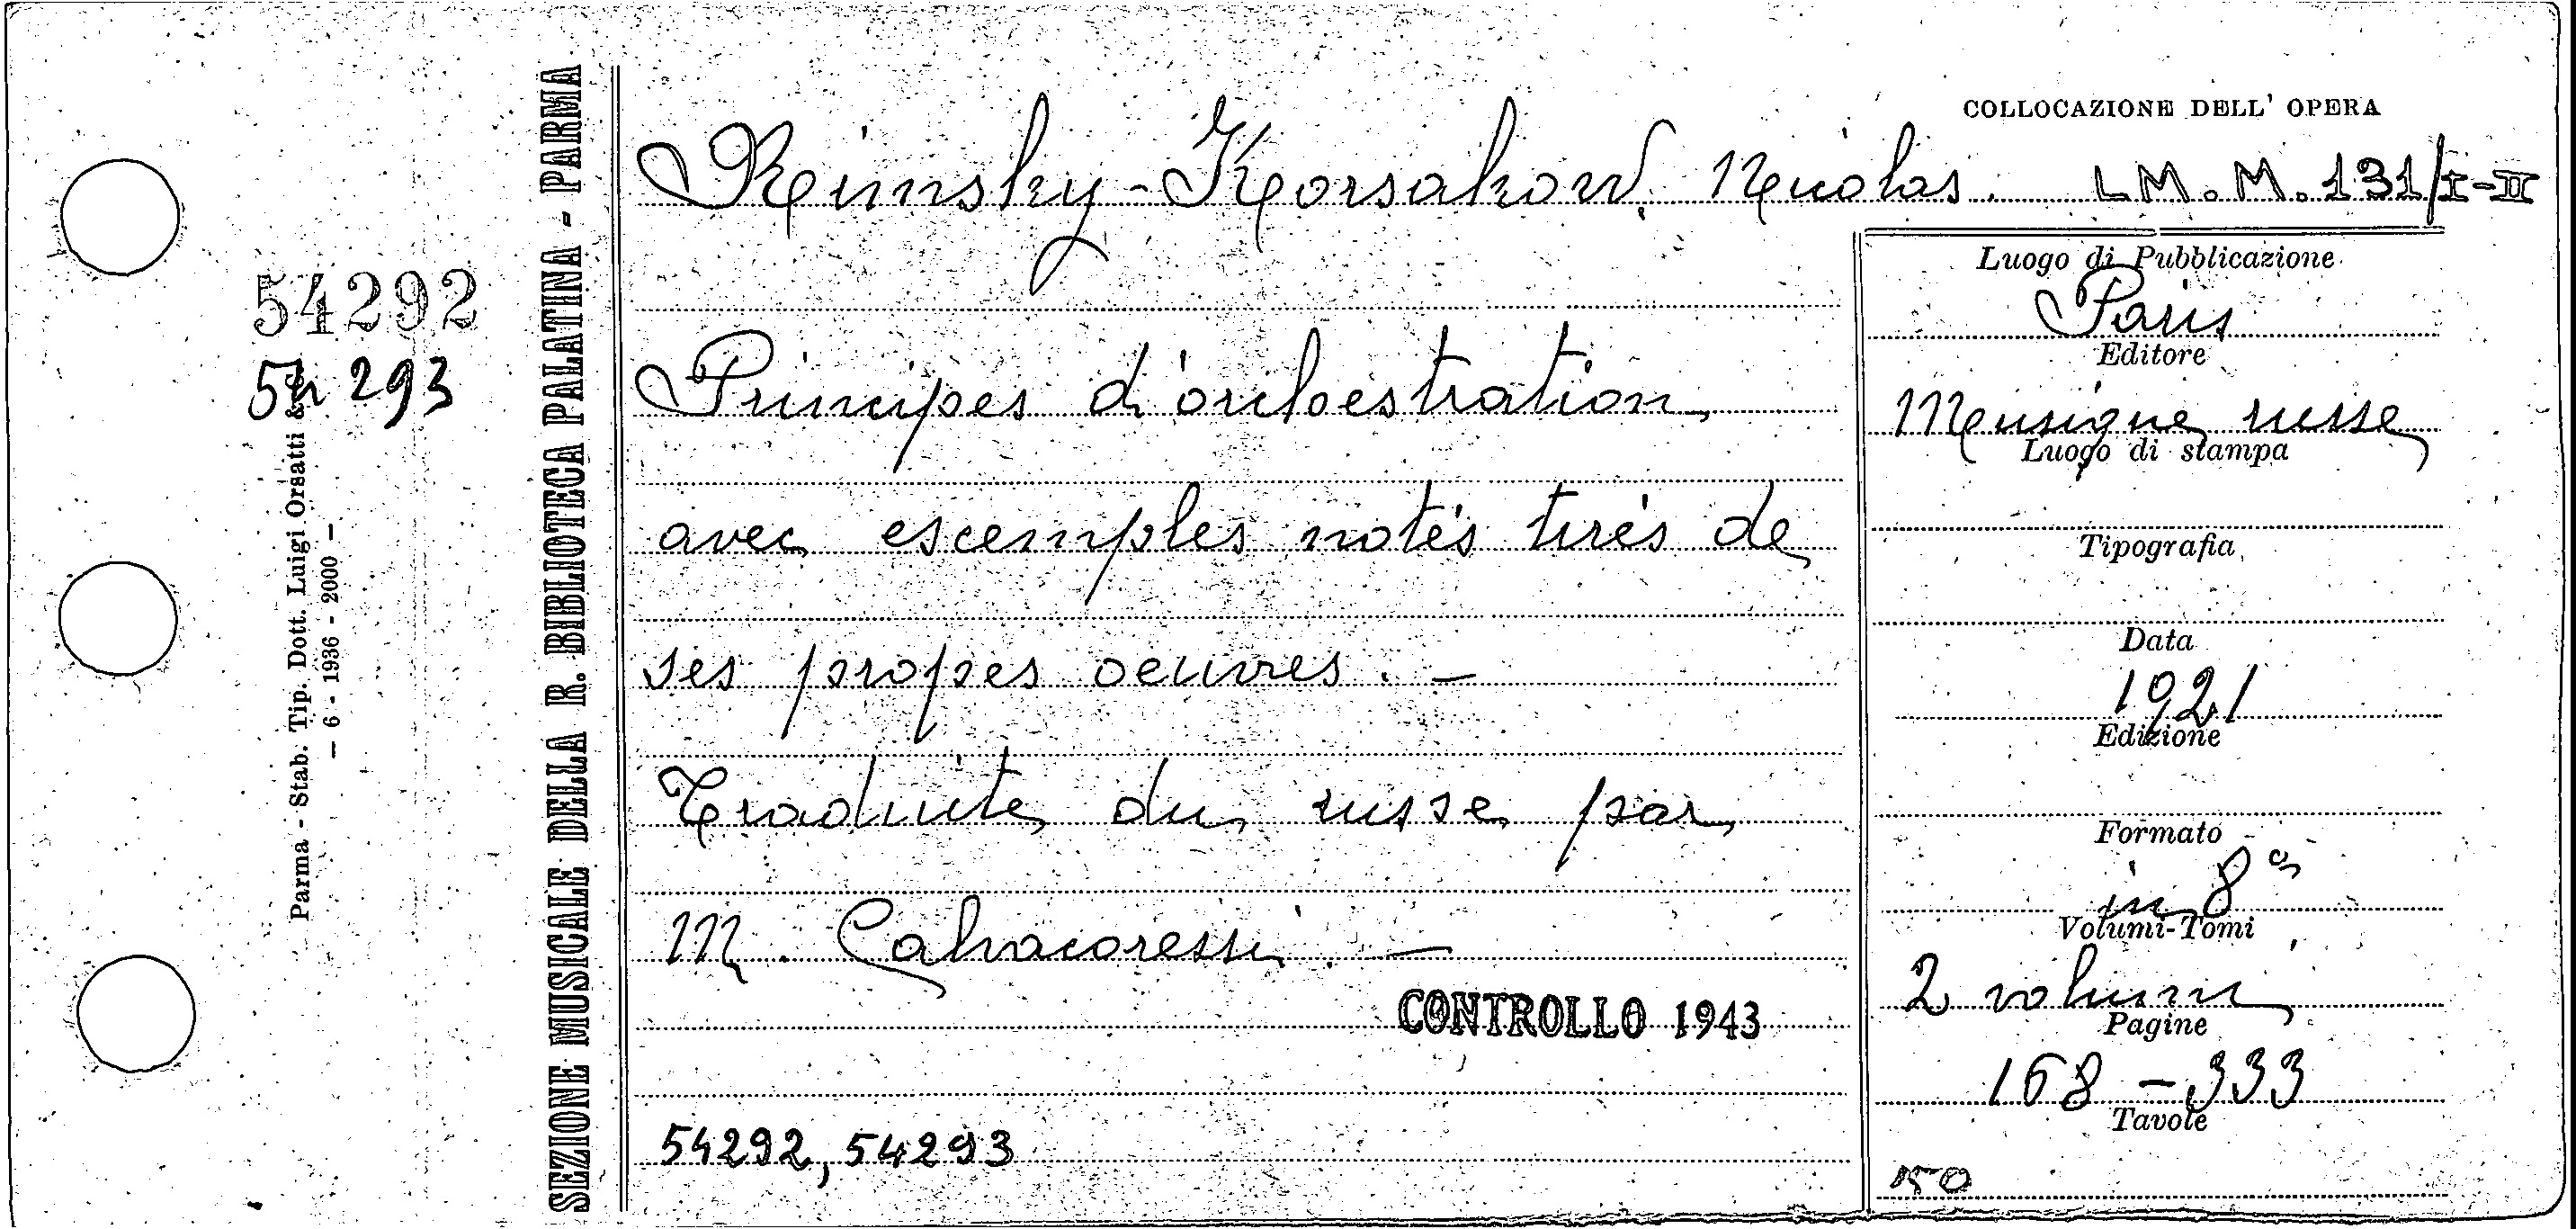 COLLOCAZIONE DELL' OPERA
Rimsky-Korsakow. Nicolas. LM. M. 131/I-II
54292
54293
Parma - Stab. Tip. Dott. Luigi Orsatti & C.
— 6 - 1936 - 2000 —
SEZIONE MUSICALE DELLA R. BIBLIOTECA PALATINA - PARMA
Principes d'orchestration
avec escemples notés tirés de
ses propes oeuvres. —
Traduite du russe par
M. Calvacoressi. —
CONTROLLO 1943
54292, 54293
Luogo di Pubblicazione
Paris
Editore
Musique russe
Luogo di stampa
Tipografia
Data
1921
Edizione
Formato
in 8°
Volumi-Tomi
2 volumi
Pagine
168 - 333
Tavole
150